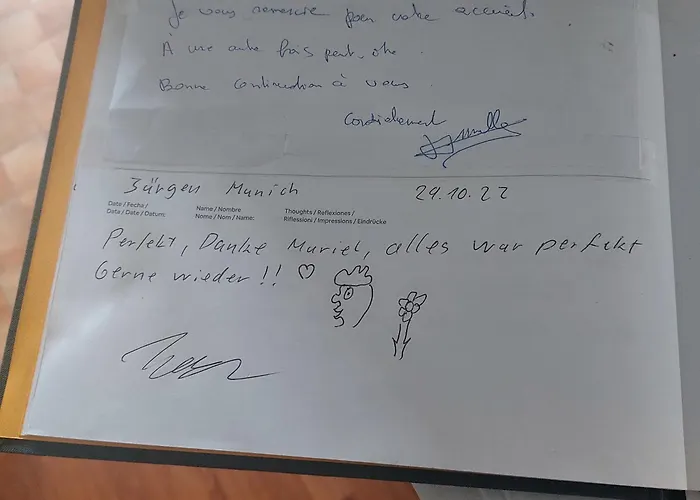 Je vous remercie pour votre accueil.
À une autre fois peut-être.
Bonne continuation à vous.
Cordialement
Jürgen Munich 29.10.22
Date / Fecha / Name / Nombre Thoughts / Reflexiones /
Data / Date / Datum: Nome / Nom / Name: Riflessioni / Impressions / Eindrücke
Perfekt, Danke Muriel, alles war perfekt
Gerne wieder!! ♡